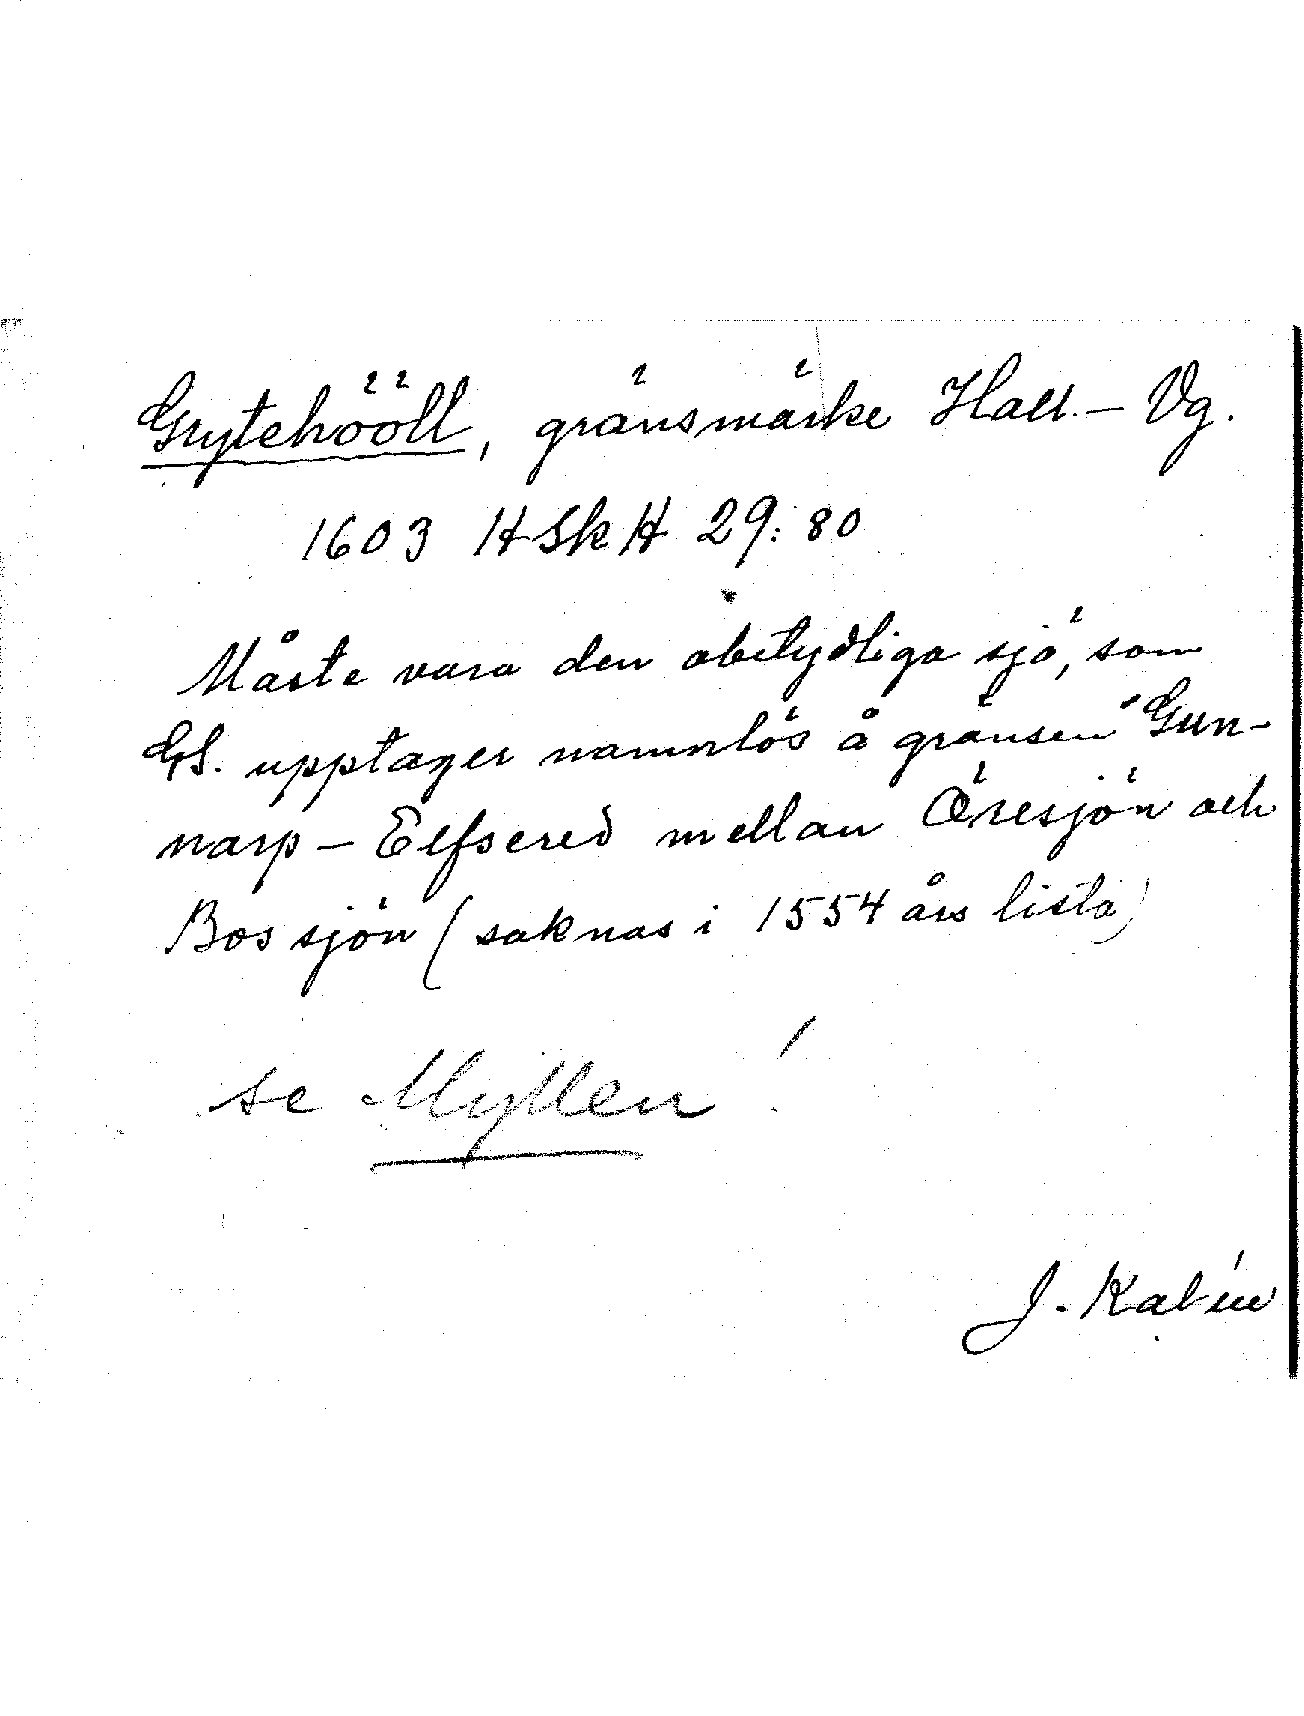 Grytehööll, gränsmärke Hall. – Vg.
1603 HSkH 29:80
Måste vara den obetydliga sjö, som
GS. upptager namnlös å gränsen Gun-
narp – Elfsered mellan Öresjön och
Bossjön (saknas i 1554 års lista)
se Myllen!
J. Kalén